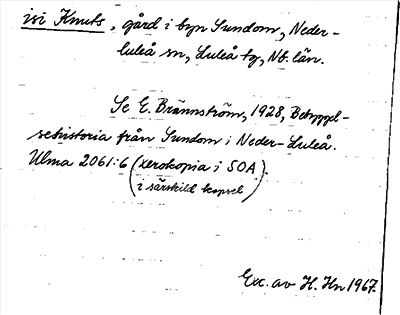 isi Knuts, gård i byn Sundom, Neder-
luleå sn, Luleå tg, Nb. län.
Se E. Brännström, 1928, Bebyggel-
sehistoria från Sundom i Neder-Luleå.
Ulma 2061:6 (xerokopia i SOA
i särskild kapsel).
Exc. av H. Hn 1967.